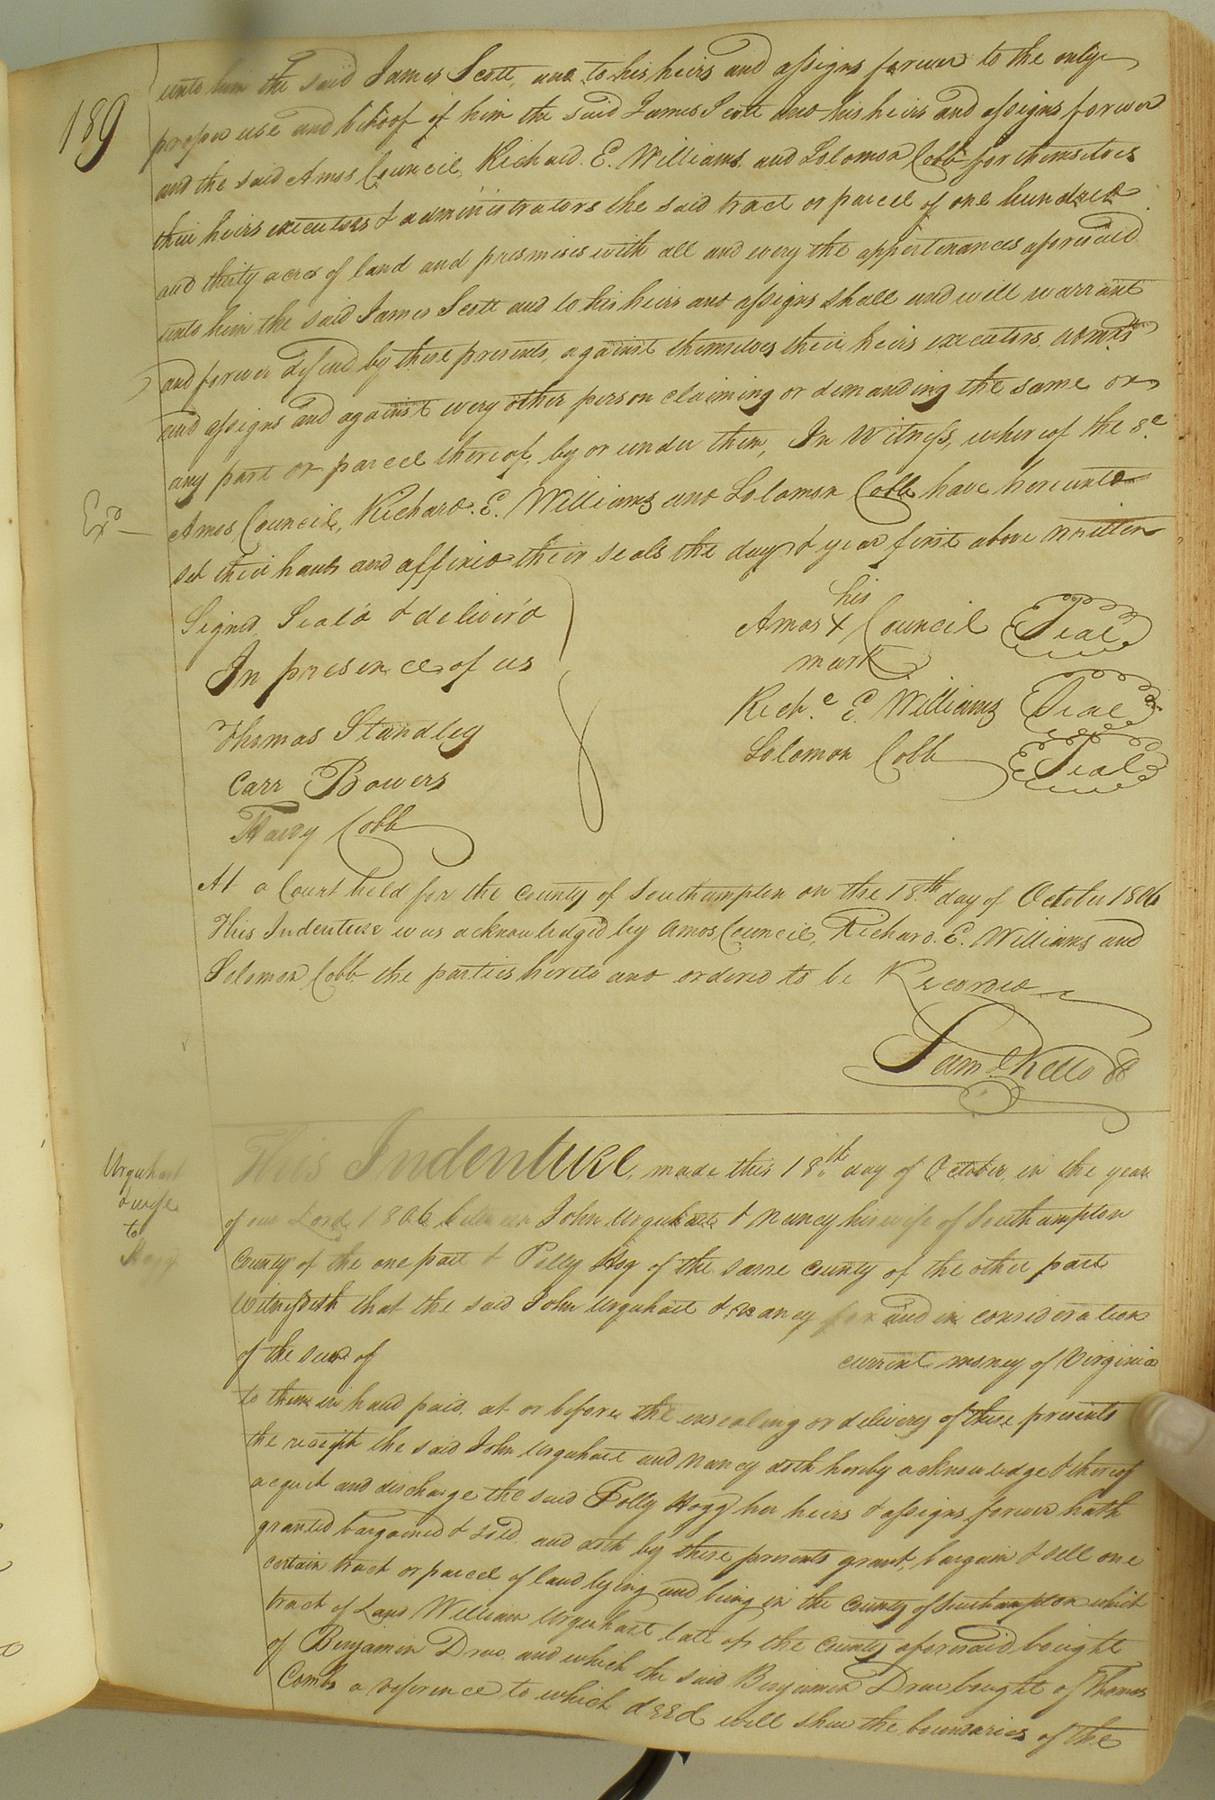 189
unto him the said James Scott, and to his heirs and assigns forever to the only
proper use and behoof of him the said James Scott and his heirs and assigns forever
and the said Amos Council, Richard. E. Williams and Solomon Cobb for themselves
their heirs executors & administrators the said tract or parcel of one hundred
and thirty acres of land and premises with all and every the appertenances aforesaid
unto him the said James Scott and to his heirs and assigns shall and will warrant
and forever defend by these presents, against themselves their heirs executors, admrs
and assigns and against every other person claiming or demanding the same or
any part or parcel thereof, by or under them, In Witness, whereof the sd
Exd
Amos Council, Richard. E. Williams and Solomon Cobb have hereunto
set their hands and affixed their seals the day & year first above written
Signed Seal'd & deliver'd
In presence of us
Thomas Standley
Carr Bowers
Hardy Cobb
his
Amos X Council Seal
mark
Richd E. Williams Seal
Solomon Cobb Seal
At a Court held for the county of Southampton on the 18th day of October 1806
This Indenture was acknowledged by Amos Council, Richard. E. Williams and
Solomon Cobb the parties hereto and ordered to be Recorded
Saml Kello CC
Urquhart
& wife
to
Hogg
This Indenture, made this 18th day of October, in the year
of our Lord 1806 between John Urquhart & Nancy his wife of Southampton
County of the one part & Polly Hog of the same county of the other part
Witnesseth that the said John Urquhart & Nancy for and in consideration
of the sum of current money of Virginia
to them in hand paid, at or before the ensealing or delivery of these presents
the receipt the said John Urquhart and Nancy doth hereby acknowledge & thereof
acquit and discharge the said Polly Hogg her heirs & assigns forever hath
granted bargained & sold, and doth by these presents grant, bargain & sell one
certain tract or parcel of land lying and being in the County of Southampton which
tract of Land William Urquhart late of the County aforesaid bought
of Benjamin Drew and which the said Benjamin Drew bought of Thomas
Combs a reference to which deed will shew the boundaries of the